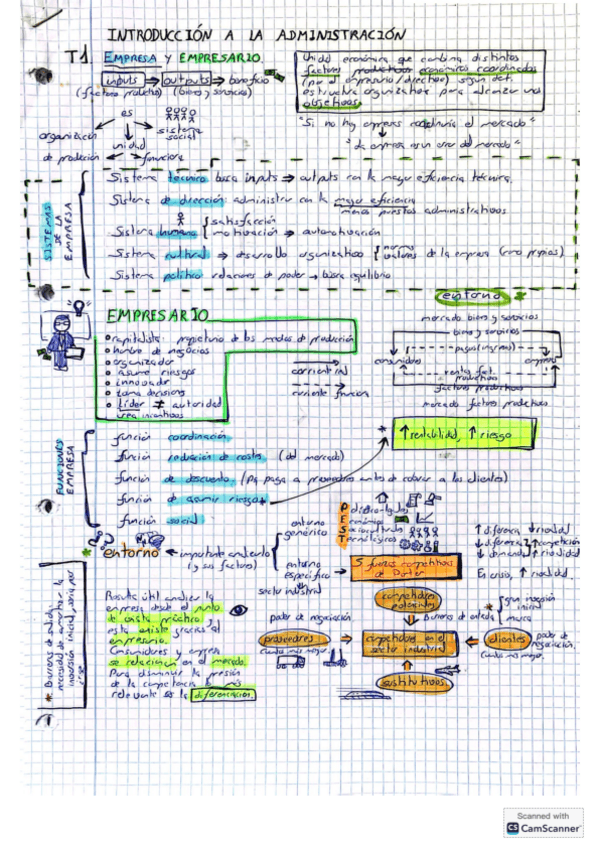 INTRODUCCIÓN A LA ADMINISTRACIÓN
T1. EMPRESA Y EMPRESARIO.
inputs → outputs → beneficio
(factores product) (bienes y servicios)
Unidad económica que combina distintos
factores productivos económicos coordinados
por el empresario (directivo) según det.
estructura organizativa para alcanzar unos
objetivos.
es
organización
de producción
unidad
financiera
sistema
social
"Si no hay empresas el mercado"
"La empresa es un del mercado"
SISTEMAS
DE LA
EMPRESA
Sistema técnico busca inputs → outputs con la mayor eficiencia técnica.
Sistema de dirección administrar con la mayor eficiencia
menos puestos administrativos
Sistema humano satisfacción
motivación → automotivación
Sistema cultural → desarrollo organizativo normas
valores de la empresa (como propios)
Sistema político relaciones de poder → busca equilibrio
entorno *
EMPRESARIO
• capitalista: propietario de los medios de producción
• hombre de negocios
• organizador
• asume riesgos
• innovador
• toma decisiones
• Líder ≠ autoridad
crea incentivos
corriente real
corriente financ
mercado bienes y servicios
bienes y servicios
pagos (ingresos)
consumidores
empresas
rentas fact.
productivos
factores productivos
mercado factores productivos
* ↑ rentabilidad, ↑ riesgo
FUNCIONES
EMPRESA
función coordinación
función reducción de costes (del mercado)
función de descuento, (paga a proveedores antes de cobrar a los clientes)
función de asumir riesgo *
función social
* entorno ← importante analizarlo
(y sus factores)
entorno
genérico
Político-legales
Económicos
Socioculturales
Tecnológicos
entorno
específico →
sector industrial
5 fuerzas competitivas
de Porter
↑ diferencia, ↓ rivalidad
↓ diferencia, ↑ competición
↓ demanda, ↑ rivalidad
En crisis, ↑ rivalidad.
* Barreras de salida:
necesidad de amortizar la
inversión inicial
Resulta útil analizar la
empresa desde el punto
de vista práctico y
esta existe gracias al
empresario.
Consumidores y empresa
se relacionan en el mercado.
Para disminuir la presión
de la competencia lo más
relevante es la diferenciación
competidores
potenciales
Barreras de entrada
gran inversión
inicial
marca
poder de negociación
proveedores
cuantos más mejor.
competidores en el
sector industrial
clientes
poder de
negociación.
cuantos más mejor.
sustitutivos
Scanned with
CS CamScanner